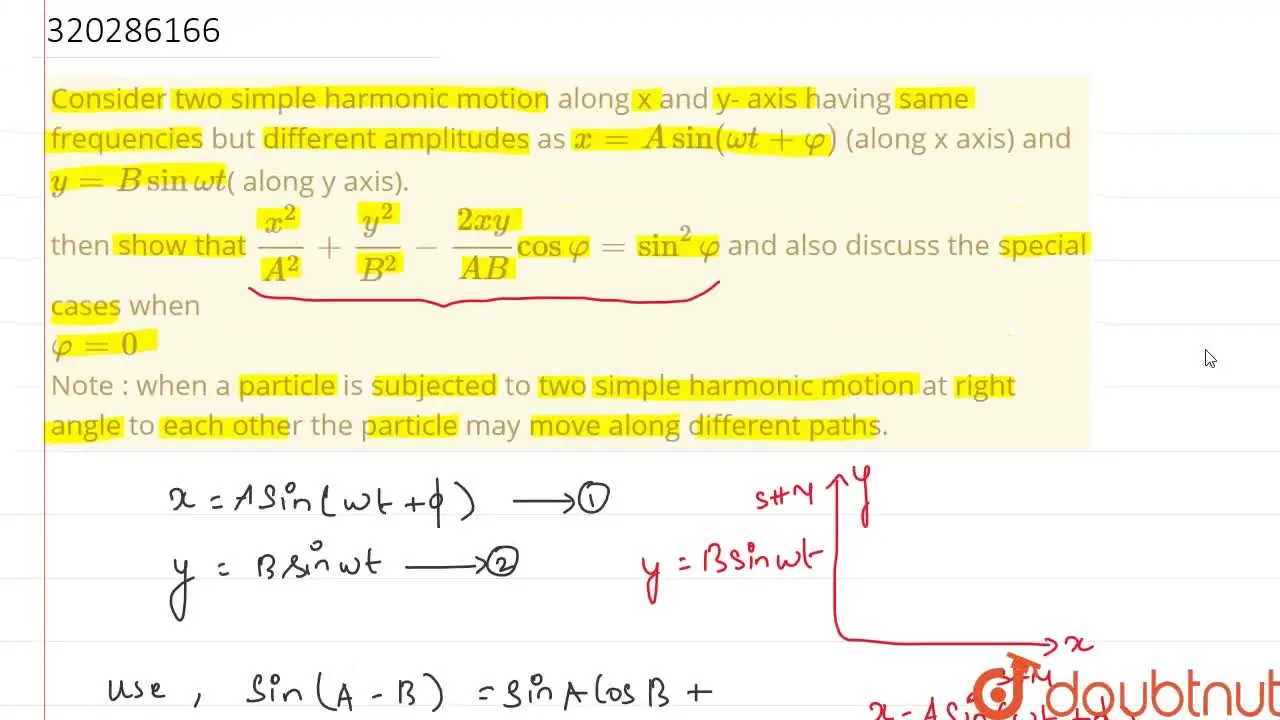 320286166
Consider two simple harmonic motion along x and y- axis having same
frequencies but different amplitudes as x = A sin(ωt + φ) (along x axis) and
y = B sin ωt( along y axis).
then show that x²/A² + y²/B² − 2xy/AB cos φ = sin² φ and also discuss the special
cases when
φ = 0
Note : when a particle is subjected to two simple harmonic motion at right
angle to each other the particle may move along different paths.
x = A Sin(ωt + φ) ⟶ ①
y = B sin ωt ⟶ ②
SHM y
y = B sin ωt
x
SHM
use , Sin(A - B) = Sin A Cos B +
x = A Sin(ωt + φ)
doubtnut